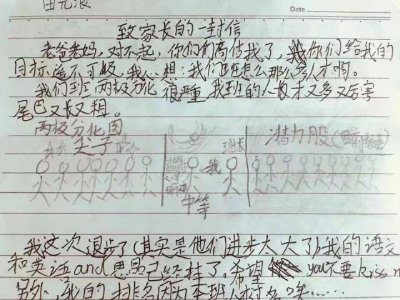 田元浪
Date
致家长的一封信
老爸老妈，对不起，你们高估我了，你们给我的
目标遥不可及，我心想：我们班怎么那么多人才啊。
我们班两极分化很严重，我班的人数才又多又后害
尾巴又长又粗。
两极分化图
尖子
潜力股
我
中等
我这次退步了（其实是他们进步太大了），我的语文
和英语and思品已经挂了，希望 you不要kiss m
另外，我的排名因为本班